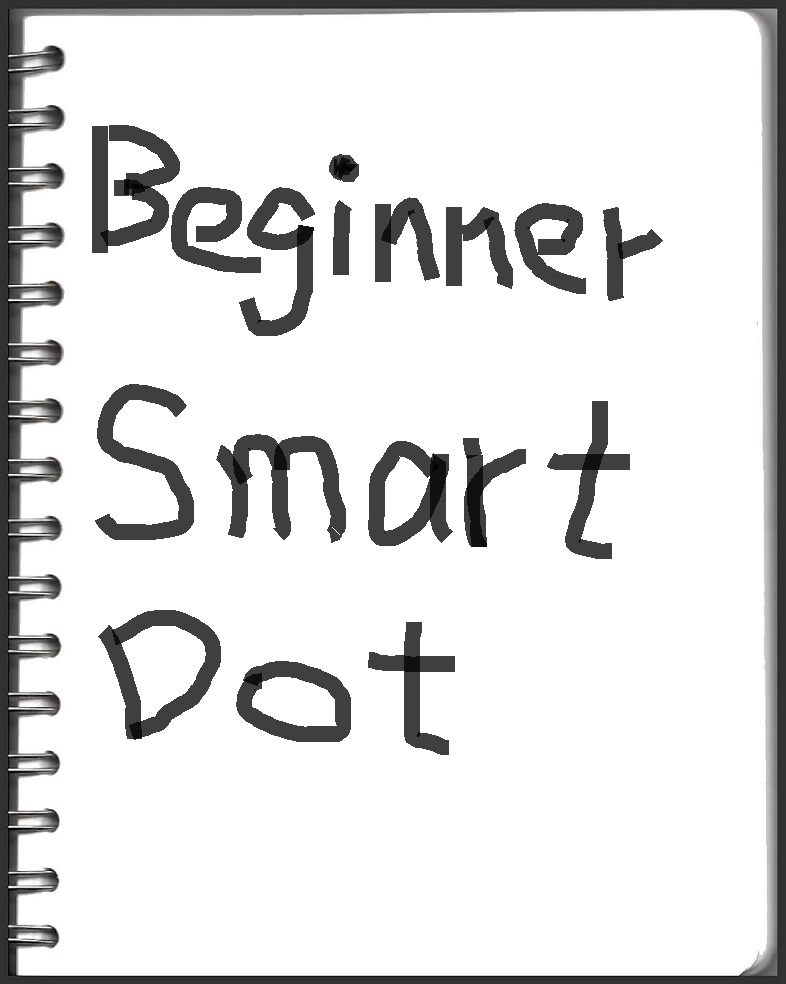 Beginner
Smart
Dot